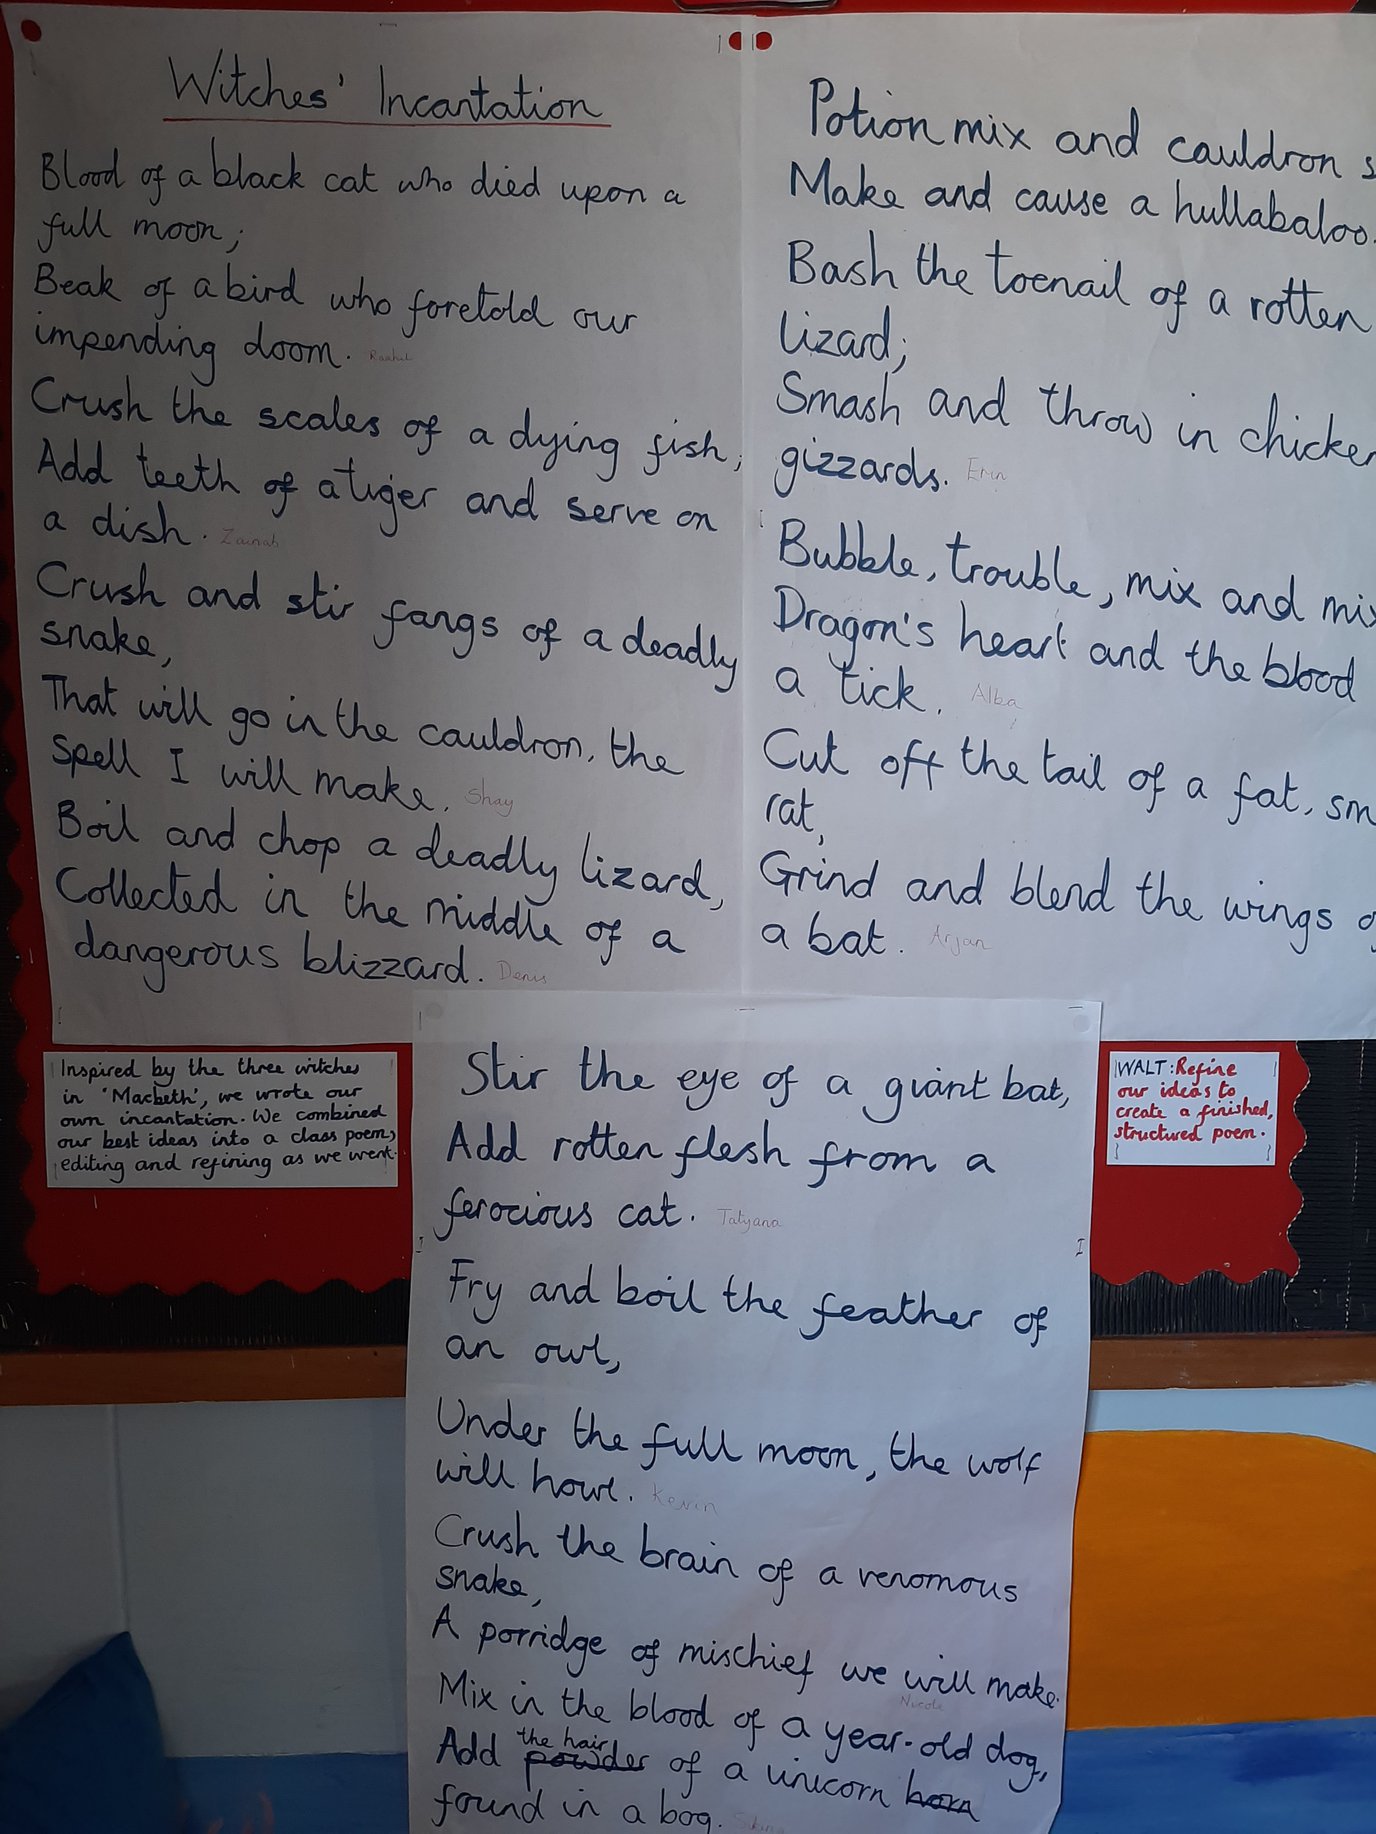 Witches' Incantation
Blood of a black cat who died upon a
full moon;
Beak of a bird who foretold our
impending doom. Raahil
Crush the scales of a dying fish;
Add teeth of a tiger and serve on
a dish. Zainab
Crush and stir fangs of a deadly
snake,
That will go in the cauldron, the
spell I will make. Shay
Boil and chop a deadly lizard,
Collected in the middle of a
dangerous blizzard. Denis
Potion mix and cauldron
Make and cause a hullabaloo.
Bash the toenail of a rotten
lizard;
Smash and throw in
gizzards. Erin
Bubble, trouble, mix and
Dragon's heart and the blood
a tick. Alba
Cut off the tail of a fat,
rat,
Grind and blend the wings
a bat. Arjan
Inspired by the three witches
in 'Macbeth', we wrote our
own incantation. We combined
our best ideas into a class poem,
editing and refining as we went.
Stir the eye of a giant bat,
Add rotten flesh from a
ferocious cat. Tatyana
Fry and boil the feather of
an owl,
Under the full moon, the wolf
will howl. Kevin
Crush the brain of a venomous
snake,
A porridge of mischief we will make.
Nicole
Mix in the blood of a year-old dog,
the hair
Add powder of a unicorn horn
found in a bog.
WALT: Refine
our ideas to
create a finished,
structured poem.